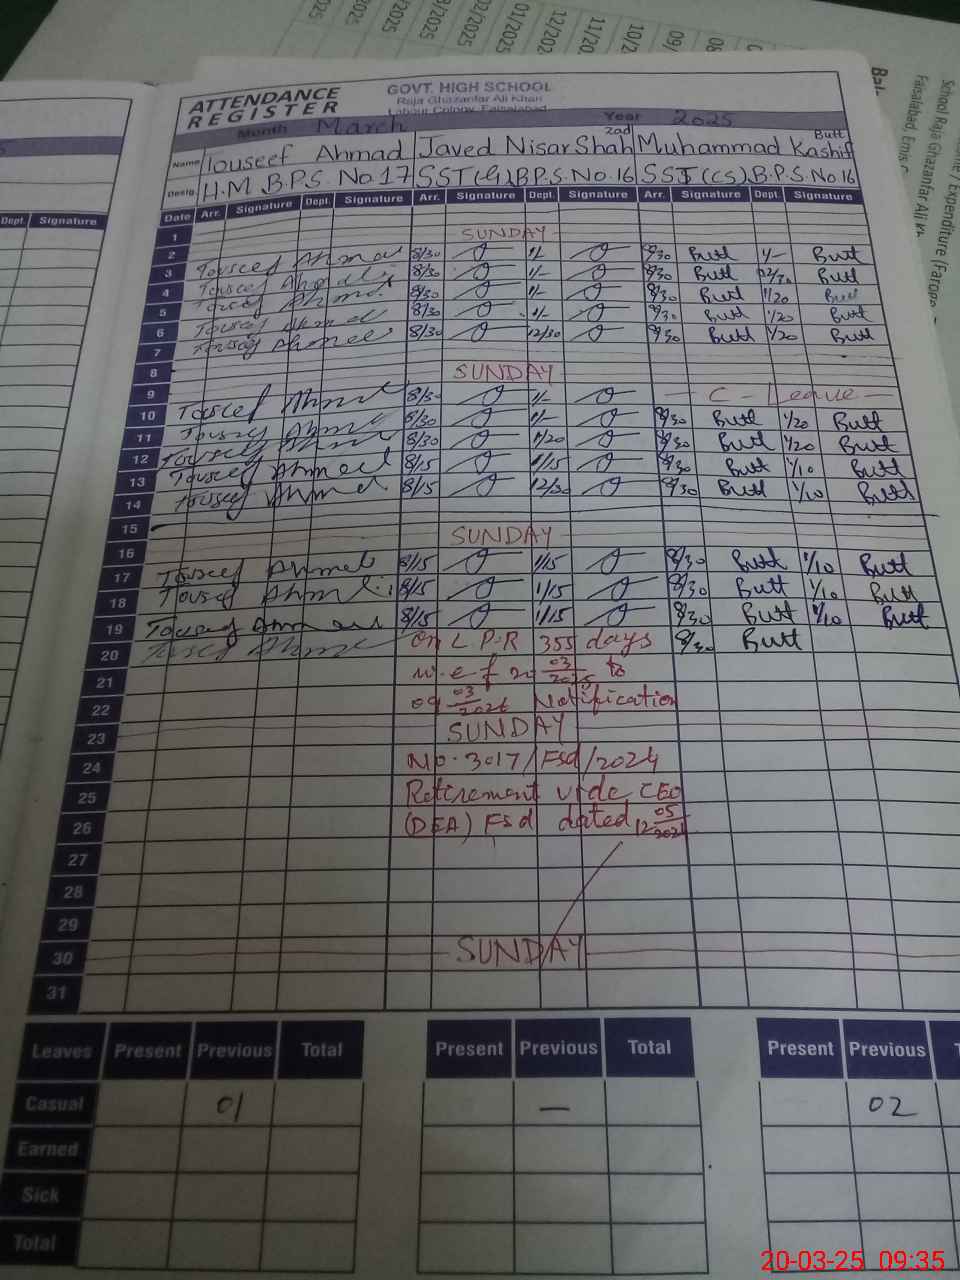 ATTENDANCE
REGISTER
GOVT. HIGH SCHOOL
Raja Ghazanfar Ali Khan
Labour Colony, Faisalabad
Month March Year 2025
Name Touseef Ahmad Javed Nisar Shahzad Muhammad Kashif Butt
Desig. H.M B.P.S. No. 17 SST(G) B.P.S. No. 16 SST (CS) B.P.S. No 16
Date Arr. Signature Dept. Signature Arr. Signature Dept. Signature Arr. Signature Dept. Signature
1 SUNDAY
2 Touseef Ahmad 8/30 1/- 8/30 Butt 1/- Butt
3 Touseef Ahmad 8/30 1/- 8/30 Butt 12/30 Butt
4 Touseef Ahmad 8/30 1/- 8/30 Butt 1/20 Butt
5 Touseef Ahmad 8/30 1/- 8/30 Butt 1/20 Butt
6 Touseef Ahmad 8/30 12/30 8/30 Butt 1/20 Butt
7
8 SUNDAY
9 Touseef Ahmad 8/30 1/- C - Leave
10 Touseef Ahmad 8/30 1/- 8/30 Butt 1/20 Butt
11 Touseef Ahmad 8/30 1/20 8/30 Butt 1/20 Butt
12 Touseef Ahmad 8/15 1/15 8/30 Butt 1/10 Butt
13 Touseef Ahmad 8/15 12/30 8/30 Butt 1/10 Butt
14
15 SUNDAY
16 Touseef Ahmad 8/15 1/15 8/30 Butt 1/10 Butt
17 Touseef Ahmad 8/15 1/15 8/30 Butt 1/10 Butt
18 Touseef Ahmad 8/15 1/15 8/30 Butt 1/10 Butt
19 Touseef Ahmad On L.P.R 355 days 8/30 Butt
20
21 w.e.f 20 03/2025 to
22 09 03/2026 Notification
23 SUNDAY
24 No. 3017/Fsd/2024
25 Retirement vide CEO
26 (DEA) Fsd dated 12 05/2024
27
28
29
30 SUNDAY
31
Leaves Present Previous Total Present Previous Total Present Previous
Casual 01 — 02
Earned
Sick
Total
20-03-25 09:35